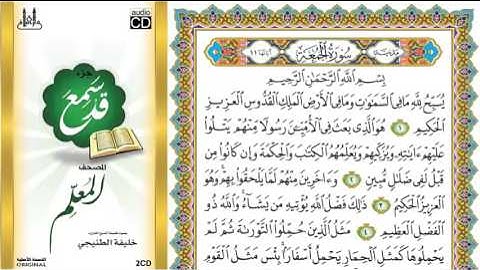 audio
CD
جزء
قد سمع
المصحف
المعلم
خليفة الطنيجي
ORIGINAL
2CD
سُورَةُ الْجُمُعَةِ
بِسْمِ اللَّهِ الرَّحْمَٰنِ الرَّحِيمِ
يُسَبِّحُ لِلَّهِ مَا فِي السَّمَٰوَٰتِ وَمَا فِي الْأَرْضِ الْمَلِكِ الْقُدُّوسِ الْعَزِيزِ
الْحَكِيمِ ۝١ هُوَ الَّذِي بَعَثَ فِي الْأُمِّيِّۦنَ رَسُولًا مِّنْهُمْ يَتْلُوا
عَلَيْهِمْ ءَايَٰتِهِۦ وَيُزَكِّيهِمْ وَيُعَلِّمُهُمُ الْكِتَٰبَ وَالْحِكْمَةَ وَإِن كَانُوا مِن
قَبْلُ لَفِي ضَلَٰلٍ مُّبِينٍ ۝٢ وَءَاخَرِينَ مِنْهُمْ لَمَّا يَلْحَقُوا بِهِمْ وَهُوَ
الْعَزِيزُ الْحَكِيمُ ۝٣ ذَٰلِكَ فَضْلُ اللَّهِ يُؤْتِيهِ مَن يَشَآءُ وَاللَّهُ ذُو
الْفَضْلِ الْعَظِيمِ ۝٤ مَثَلُ الَّذِينَ حُمِّلُوا التَّوْرَىٰةَ ثُمَّ لَمْ
يَحْمِلُوهَا كَمَثَلِ الْحِمَارِ يَحْمِلُ أَسْفَارًا بِئْسَ مَثَلُ الْقَوْمِ